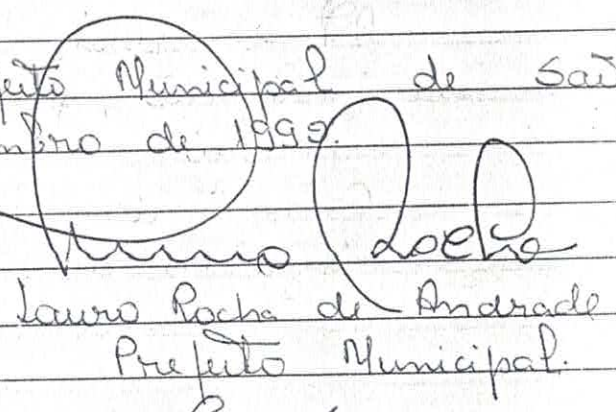 feito Municipal de Saú
mbro de 1999.
Lauro Rocha
Lauro Rocha de Andrade
Prefeito Municipal.